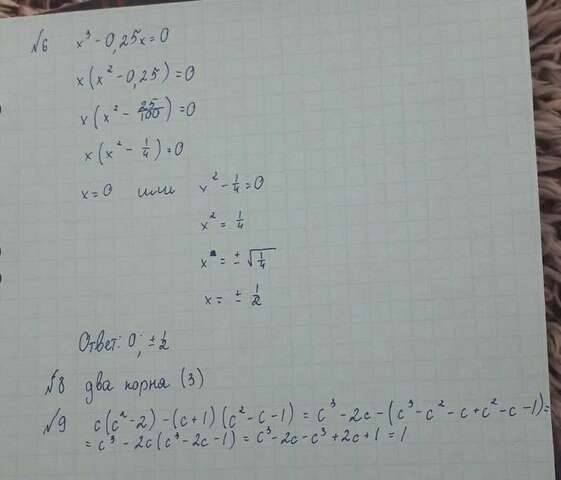 №6 x³ - 0,25x = 0
x(x² - 0,25) = 0
x(x² - 25/100) = 0
x(x² - 1/4) = 0
x = 0 или x² - 1/4 = 0
x² = 1/4
x = ± √1/4
x = ± 1/2
Ответ: 0; ± 1/2
№8 два корня (3)
№9 c(c² - 2) - (c + 1)(c² - c - 1) = c³ - 2c - (c³ - c² - c + c² - c - 1) =
= c³ - 2c (c³ - 2c - 1) = c³ - 2c - c³ + 2c + 1 = 1